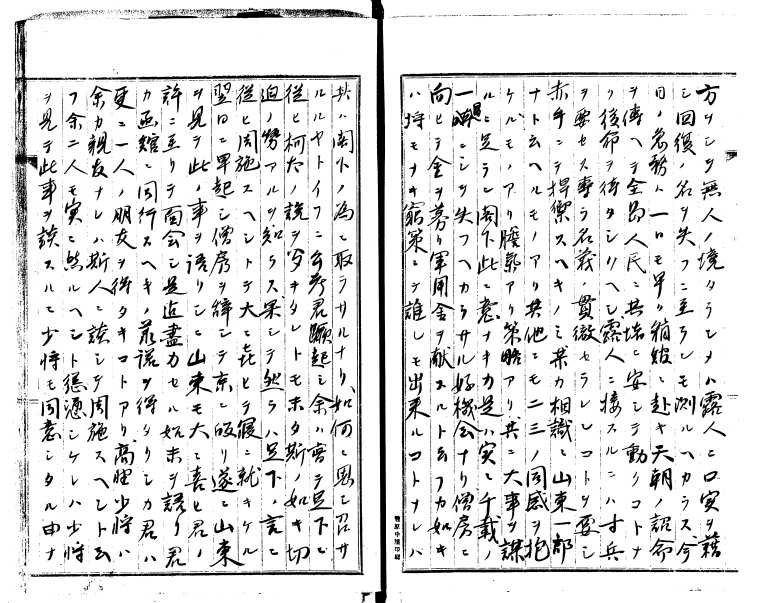 方ヲシテ無人ノ境タラシメハ露人ニ口実ヲ藉
シ回復ノ名ヲ失フニ至ランモ測ルヘカラス今
日ノ急務ハ一日モ早ク箱館ニ赴キ天朝ノ詔命
ヲ傳ヘテ全島人民ニ其堵ニ安シテ動クコトナ
ク後命ヲ待タシムヘシ露人ニ接スルニハ寸兵
ヲ要セス專ラ名義ノ貫徹セラレンコトヲ要シ
赤手ニテ捍禦スヘキノミ某カ相識ニ山東一郎
ナト云ヘルモノアリ其他ニモ二三ノ同感ヲ抱
ケルモノアリ膽氣アリ策略アリ共ニ大事ヲ謀
ルニ足ラン閣下此ニ意ナキカ是ハ実ニ千載ノ
一遇ニシテ失フヘカラサル好機会ナリ僧房ニ
向ヒテ金ヲ募リ軍用金ヲ献スルト云フカ如キ
ハ将モナキ窮策ニテ誰レモ出来ルコトナレハ
其ハ閣下ノ為ニ取ラサルナリ如何ニ思ヒ召サ
ルルヤトイフニ公考君蹶起シ余ハ嘗テ足下ニ
從ヒ柯太ノ説ヲ聞キタレトモ未タ斯ノ如キ切
迫ノ勢アルヲ知ラス果シテ然ラハ足下ノ言ニ
從ヒ周施スヘシトテ大ニ喜ヒテ寝ニ就キケル
翌日ニ早起シ僧房ヲ辞シテ京ニ皈リ遂ニ山東
ヲ見テ此ノ事ヲ語リシニ山東モ大ニ喜ヒ君ノ
許ニ至リテ面会シ是迄盡力セル始末ヲ語リ君
カ函館ニ同行スヘキノ承諾ヲ得タリシカ君ハ
更ニ一人ノ朋友ヲ得タキコトアリ高野少将ハ
余カ親友ナレハ斯人ニ談シテ周施スヘシト云
フ余二人モ実ニ然ルヘシト慫慂シケレハ少将
ヲ見テ此事ヲ談スルニ少将モ同意シタル由ナ